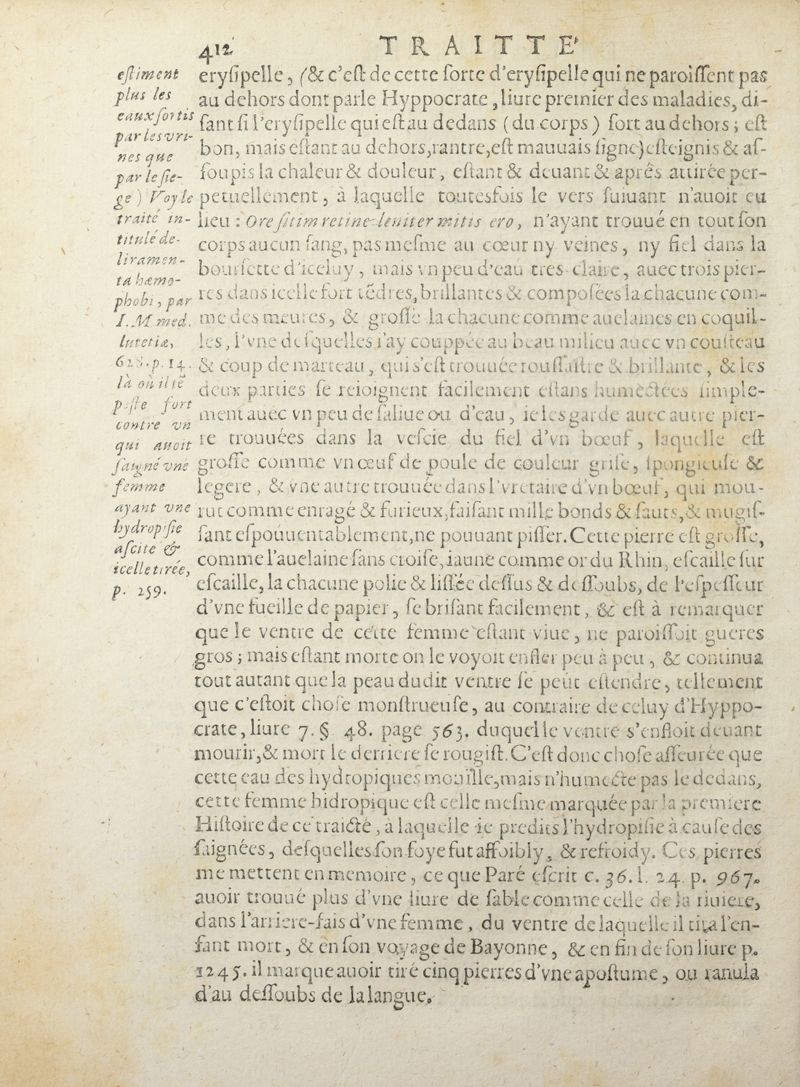 412 TRAITTE'
erysipelle, (& c'est de cette sorte d'erysipelle qui ne paroissent pas
au dehors dont parle Hyppocrate, liure premier des maladies, di-
sant si l'erysipelle qui est au dedans (du corps) sort au dehors; est
bon, mais estant au dehors, rantre, est mauuais signe) esteignis & as-
soupis la chaleur & douleur, estant & deuant & aprés attirée per-
petuellement, à laquelle toutesfois le vers suiuant n'auoit eu
lieu: Ore sitim retine leniter mitis ero, n'ayant trouué en tout son
corps aucun sang, pas mesme au cœur ny veines, ny fiel dans la
boursette d'iceluy, mais vn peu d'eau tres-claire, auec trois pier-
res dans icelle fort tédres, brillantes & composées la chacune com-
me des meures, & grosse la chacune comme auelaines en coquil-
les, l'vne desquelles i'ay couppée au beau milieu auec vn cousteau
& coup de marteau, qui s'est trouuée roussastre & brillante, & les
deux parties se reioignent facilement estans humectées simple-
ment auec vn peu de saliue ou d'eau, ie les garde auec autre pier-
re trouuées dans la vescie du fiel d'vn bœuf, laquelle est
grosse comme vn œuf de poule de couleur grise, spongieuse &
legere, & vne autre trouuée dans l'vretaire d'vn bœuf, qui mou-
rut comme enragé & furieux, faisant mille bonds & sauts, & mugis-
sant espouuentablement, ne pouuant pisser. Cette pierre est grosse,
comme l'auelaine sans croise, iaune comme or du Rhin, escaille sur
escaille, la chacune polie & lissée dessus & dessoubs, de l'espesseur
d'vne fueille de papier, se brisant facilement, & est à remarquer
que le ventre de cette femme estant viue, ne paroissoit gueres
gros; mais estant morte on le voyoit enfler peu à peu, & continua
tout autant que la peau dudit ventre se peut estendre, tellement
que c'estoit chose monstrueuse, au contraire de celuy d'Hyppo-
crate, liure 7. § 48. page 563. duquel le ventre s'enfloit deuant
mourir, & mort le derriere se rougist. C'est donc chose asseurée que
cette eau des hydropiques mouille, mais n'humecte pas le dedans,
cette femme hidropique est celle mesme marquée par la premiere
Histoire de ce traicté, à laquelle ie predits l'hydropisie à cause des
saignées, desquelles son foye fut affoibly, & refroidy. Ces pierres
me mettent en memoire, ce que Paré escrit c. 36. l. 24. p. 967.
auoir trouué plus d'vne liure de sable comme celle de la riuiere,
dans l'arriere-fais d'vne femme, du ventre de laquelle il tira l'en-
fant mort, & en son voyage de Bayonne, & en fin de son liure p.
1245. il marque auoir tiré cinq pierres d'vne apostume, ou ranula
d'au dessoubs de la langue.
estiment
plus les
eaux sortis
par les vri-
nes que
par le sie-
ge) Voyle
traité in-
titulé de-
liramen-
ta hæmo-
phobi, par
I. M med.
lutetiæ,
p. 14.
là où il se
fort
contre vn
qui auoit
saigné vne
femme
ayant vne
hydropisie
ascite &
icelle tirée,
p. 259.